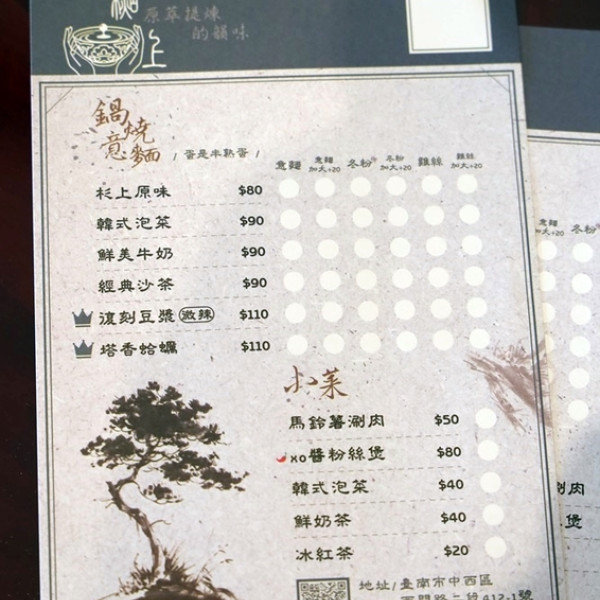 上
原萃提煉
的韻味
鍋燒
意麵
/ 蛋是半熟蛋 /
意麵 意麵加大+20 冬粉 冬粉加大+20 雞絲 雞絲加大+20
杉上原味 $80
韓式泡菜 $90
鮮美牛奶 $90
經典沙茶 $90
復刻豆漿 微辣 $110
塔香蛤蠣 $110
小菜
馬鈴薯涮肉 $50
xo醬粉絲煲 $80
韓式泡菜 $40
鮮奶茶 $40
冰紅茶 $20
地址/臺南市中西區
西門路二段412-1號
意麵加大+20 冬粉
涮肉
煲